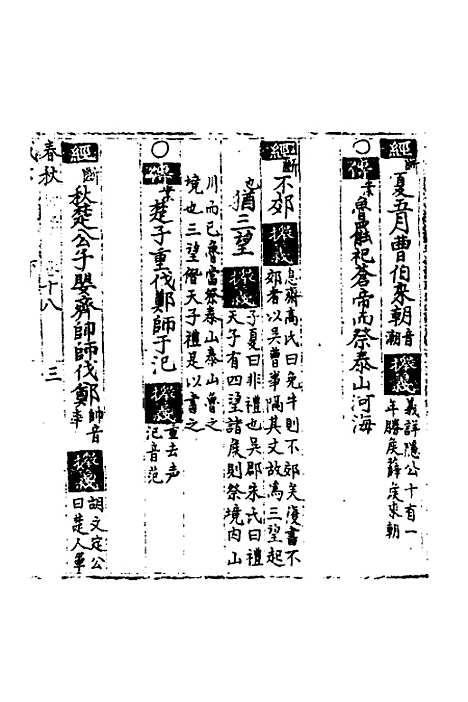 經斷夏五月曹伯來朝音潮 㨿義 義詳隱公十有一年滕侯薛侯來朝
○傳業魯能祀蒼帝而祭泰山河海
經斷不郊 㨿義 息齋高氏曰免牛則不郊矣復書不郊者以吳曹事隔其文故爲三望起
也猶三望 㨿義 子夏曰非禮也吳郡朱氏曰禮天子有四望諸侯則祭境内山
川而已魯當祭泰山泰山魯之境也三望僭天子禮是以書之
○傳業楚子重伐鄭師于氾 㨿義 重去声氾音范
經斷秋楚公子嬰齊帥師伐鄭帥音率 㨿義 胡文定公曰楚人軍
春秋 十八 三